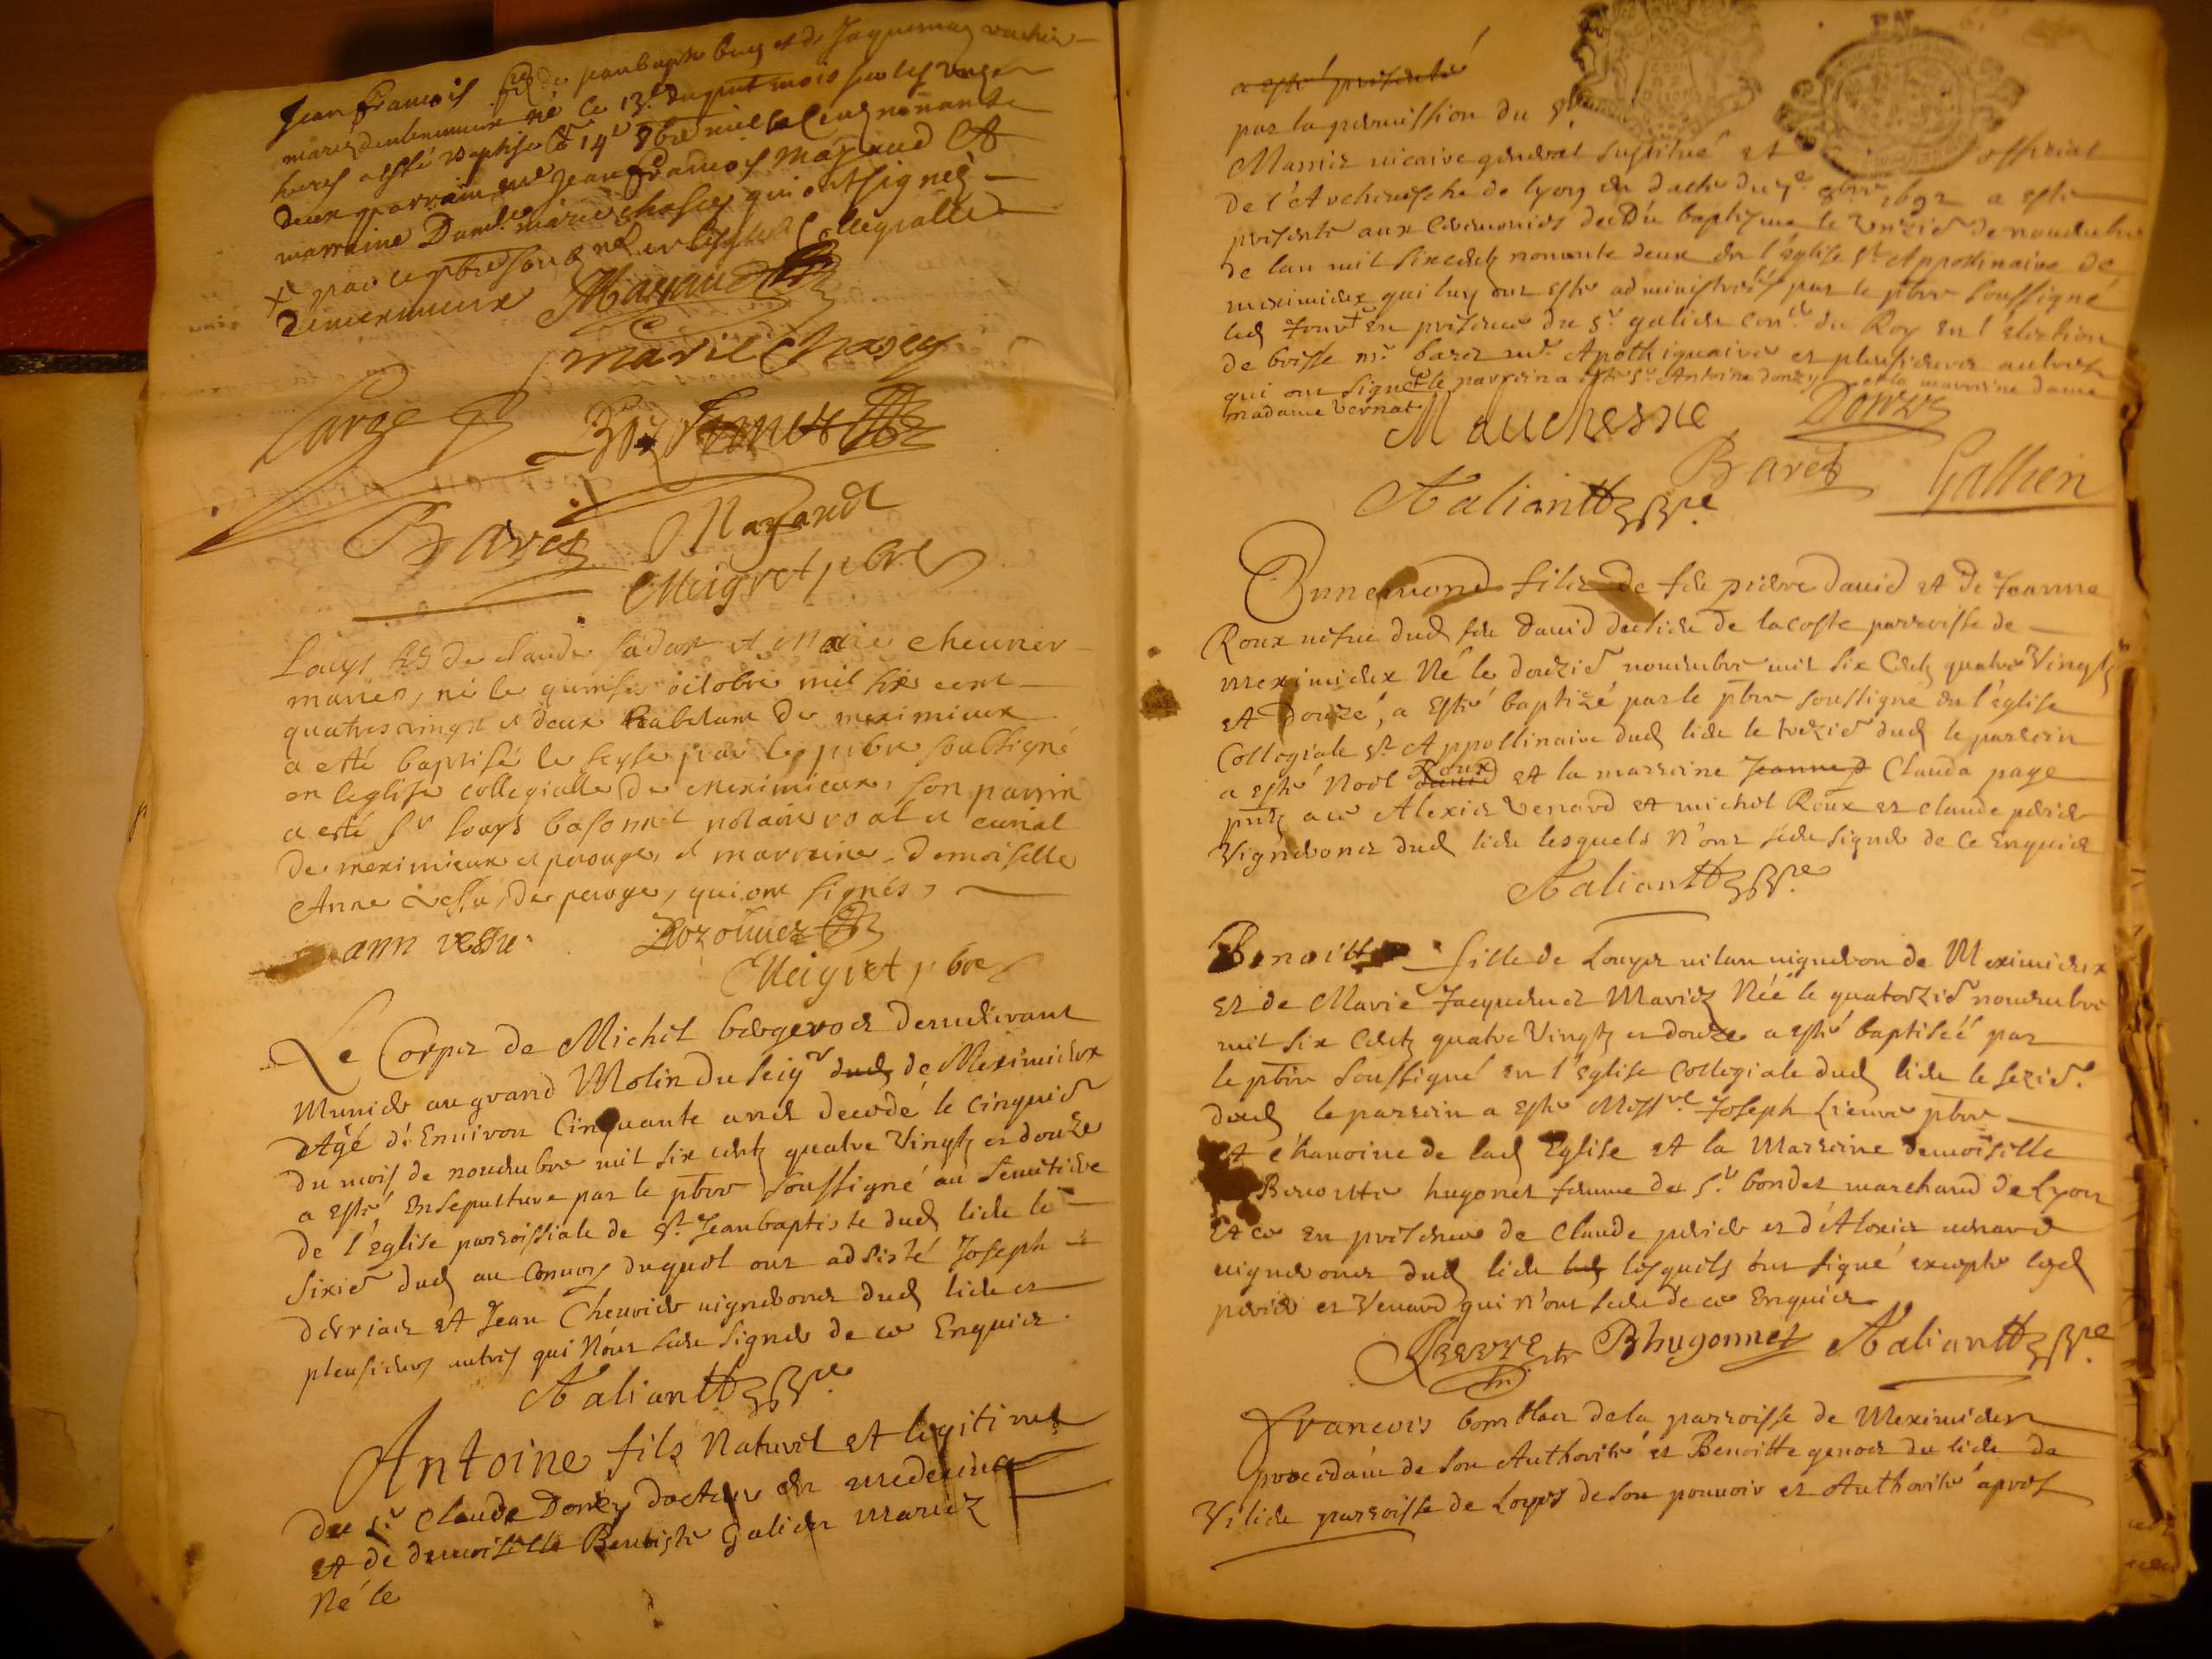 Jean François fils de Jean baptiste et de Jaquemaz
mariés né le 13e du pnt mois sur les unze
heures a esté baptisé le 14e 8bre mil six Cens nonante
deux parrain Jean François Mayaud et
marraine Damle marie chasey qui ont signés
par le pbre en leglise Collegialle
de meximieux Mayaud
marie Chasey
Baret Mayaud
Meigret pbre
Louys fils de claude et Marie cheurier
mariés, né le quinse octobre mil six cent
quatres vingt et deux habitant de meximieux
a esté baptisé le seyse par le pbre soubsigné
en leglise collegialle de Meximieux, son parrin
a esté Sr Louys notaire roal et curial
de meximieux et perouges et marraine demoiselle
Anne de perouge, qui ont signés,
ann
Meigret pbre
Le Corps de Michel demeurant
Munier au grand Molin du Seigr dud de Meximieux
Agé d'Environ Cinquante ans decedé le cinquie
du mois de nouembre mil six cents quatre Vingts et douze
a esté Ensepulturé par le pbre soussigné au Semetiere
de l'Eglise parroissiale de St Jean baptiste dud lieu le
sixie dud au Conuoy duquel ont adsisté Joseph
et Jean Cheurier uignerons dud lieu et
pleusieurs autres qui n'ont sceu signer de ce Enquis
Antoine fils Naturel et legitime
du Sr Claude Donzy docteur en medecine
et de demoiselle Benoiste Galien mariez
Né le
a esté presenté
par la permission du Sr
uicaire general substitué et official
de l'Archeuesché de lyon en datte du 7e 8bre 1692 a esté
presenté aux Ceremonies dud baptisme le unzie de nouembre
de lan mil six cents nonante deux en l'église St Appollinaire de
meximieux qui luy ont esté administrés par le pbre soussigné
led Jour et en presence du Sr galien coner du Roy en l'Election
de bresse mr baret Apothiquaire et pleusieurs autres
qui ont signé le parrein a esté Sr Antoine donzy et la marreine dame
madame vernat
M duchesne Donzy
Baret Gallien
Ennemond fils de feu pierre dauid et de Jeanne
Roux uefue dud feu Dauid du lieu de lacoste parroisse de
meximieux Né le douzie nouembre mil six Cents quatre Vingts
et Douze, a esté baptizé par le pbre soussigné en l'église
Collegiale St Appollinaire dud lieu le trezie dud le parrein
a esté Noel Roux et la marreine Jeanne Clauda page
pnts Alexis Venard et michel Roux et claude perier
Vignerons dud lieu lesquels n'ont sceu signer de Ce Enquis
Benoitte fille de Louys uilan uigneron de Meximieux
et de Marie Jacquemet Mariez Née le quatorzie nouembre
mil six Cents quatre Vingts et douze a esté baptiséé par
le pbre Soussigné en l'église Collegiale dud lieu le sezie
dud le parrein a esté Messre Joseph Lieure pbre
et chanoine de lad Eglise et la Marreine demoiselle
Benoitte hugonet femme du Sr bondet marchand de Lyon
Et ce en presence de Claude perier et d'Alexis uenard
uignerons dud lieu led lesquels ont signé excepté lesd
perier et Venard qui n'ont sceu de ce Enquis
Bhugonnet
Francois de la parroisse de Meximieux
procedant de son Authorité et Benoitte genod du lieu de
Vilieu parroisse de Loyes de son pouuoir et Authorité apres